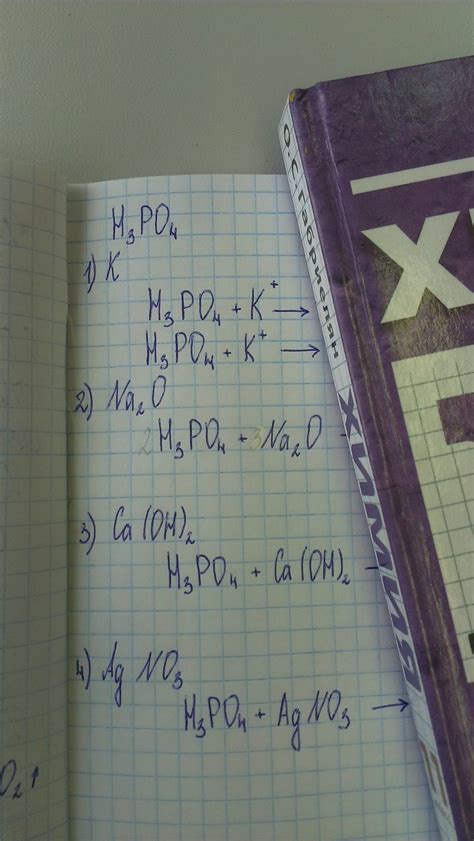 H₃PO₄
1) K
H₃PO₄ + K⁺ →
H₃PO₄ + K⁺ →
2) Na₂O
2H₃PO₄ + 3Na₂O -
3) Ca(OH)₂
H₃PO₄ + Ca(OH)₂ -
4) AgNO₃
H₃PO₄ + AgNO₃ →
O₂↑
О.С. Габриелян
ХИМИЯ
Х